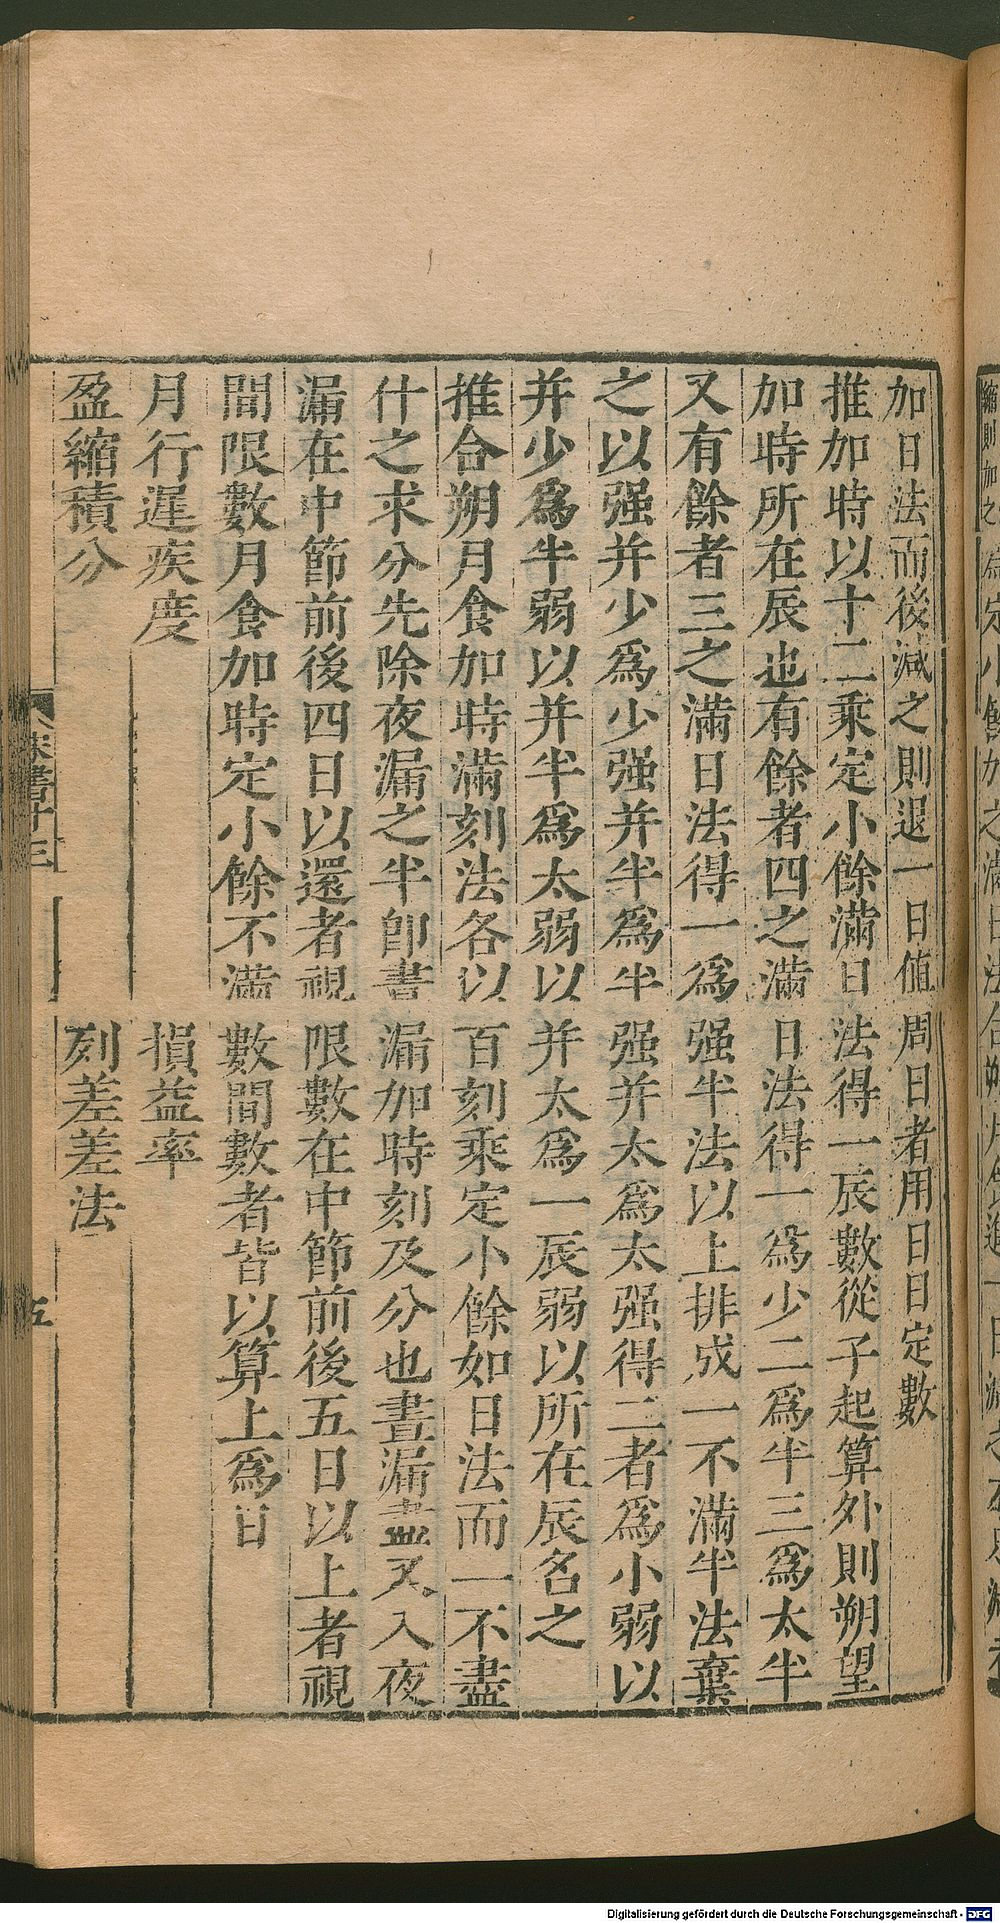 加日法而後減之則退一日値周日者用日日定數
推加時以十二乘定小餘滿日法得一辰數從子起算外則朔望
加時所在辰也有餘者四之滿日法得一爲少二爲半三爲太半
又有餘者三之滿日法得一爲强半法以上排成一不滿半法棄
之以强并少爲少强并半爲半强并太爲太强得二者爲小弱以
并少爲半弱以并半爲太弱以并太爲一辰弱以所在辰名之
推合朔月食加時滿刻法各以百刻乘定小餘如日法而一不盡
什之求分先除夜漏之半卽晝漏加時刻及分也晝漏盡又入夜
漏在中節前後四日以還者視限數在中節前後五日以上者視
間限數月食加時定小餘不滿數間數者皆以算上爲日
月行遲疾度 損益率
盈縮積分 列差差法
宋書十三
五
縮則加之
Digitalisierung gefördert durch die Deutsche Forschungsgemeinschaft - DFG